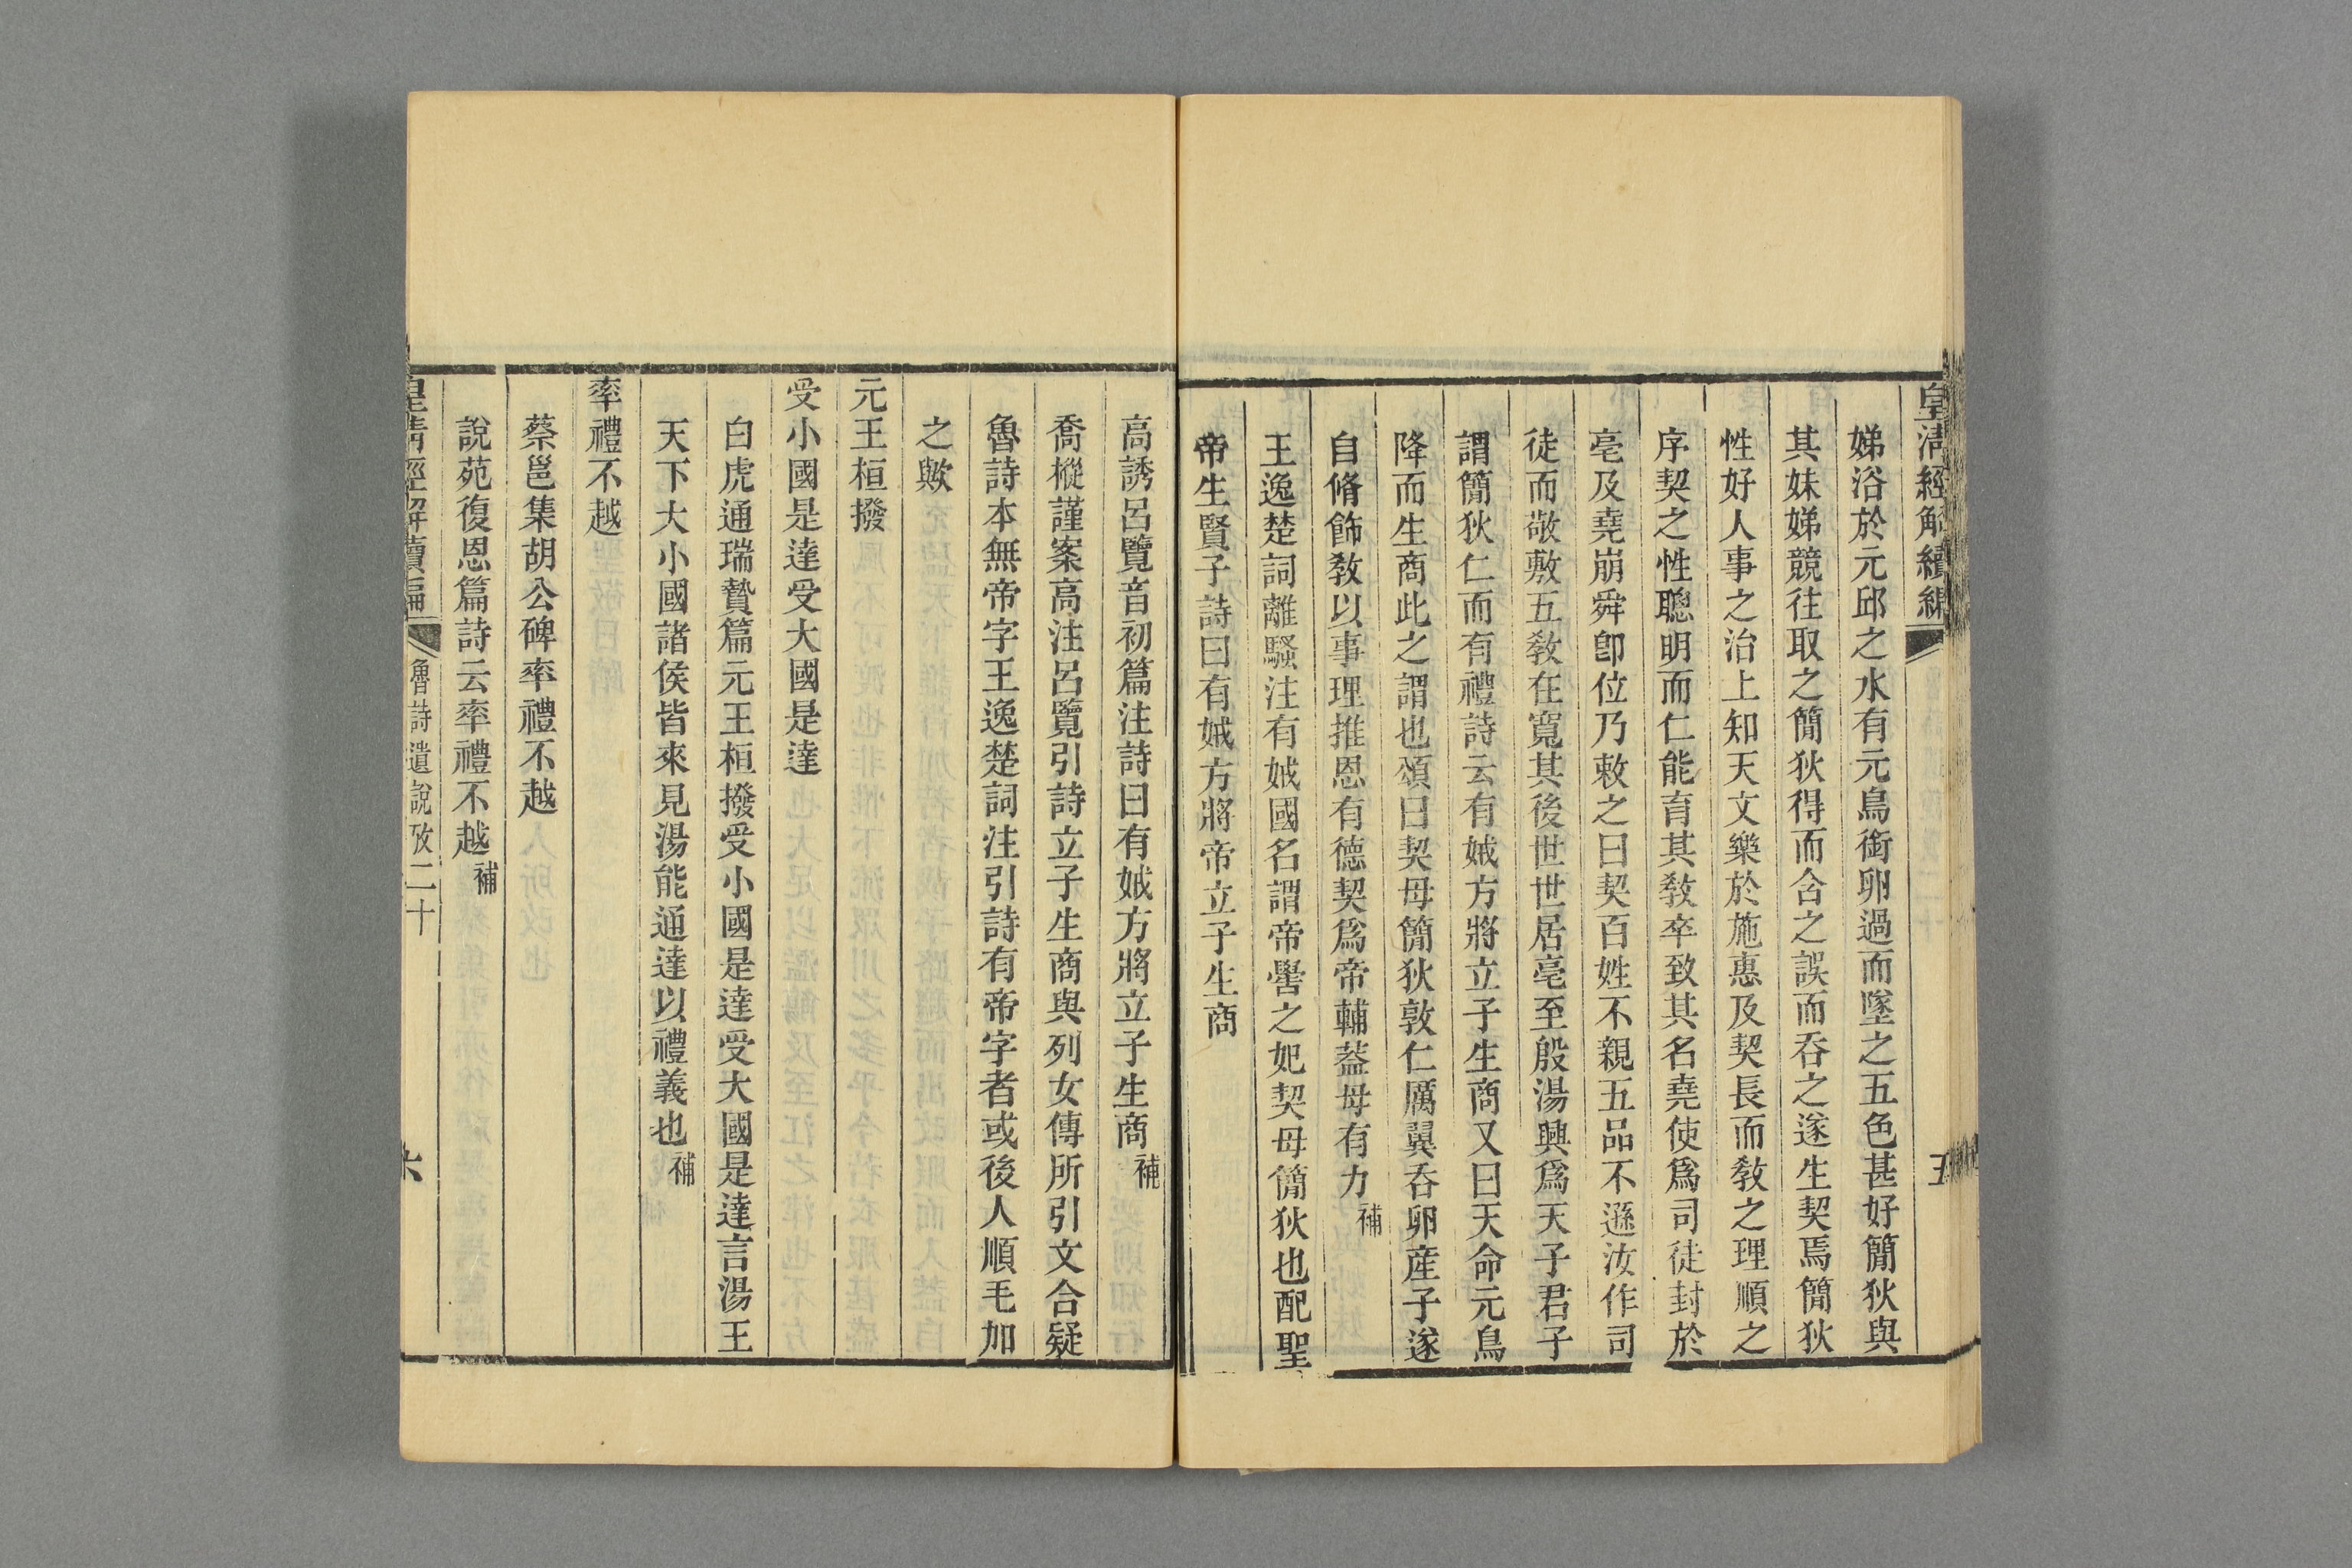 皇清經解續編
五
娣浴於元邱之水有元鳥銜卵過而墜之五色甚好簡狄與
其妹娣競往取之簡狄得而含之誤而吞之遂生契焉簡狄
性好人事之治上知天文樂於施惠及契長而敎之理順之
序契之性聰明而仁能育其敎卒致其名堯使爲司徒封於
亳及堯崩舜卽位乃敕之曰契百姓不親五品不遜汝作司
徒而敬敷五敎在寬其後世世居亳至殷湯興爲天子君子
謂簡狄仁而有禮詩云有娀方將立子生商又曰天命元鳥
降而生商此之謂也頌曰契母簡狄敦仁厲翼吞卵產子遂
自脩飾敎以事理推恩有德契爲帝輔蓋母有力補
王逸楚詞離騷注有娀國名謂帝嚳之妃契母簡狄也配聖
帝生賢子詩曰有娀方將帝立子生商
高誘呂覽音初篇注詩曰有娀方將立子生商補
喬樅謹案高注呂覽引詩立子生商與列女傳所引文合疑
魯詩本無帝字王逸楚詞注引詩有帝字者或後人順毛加
之歟
元王桓撥
受小國是達受大國是達
白虎通瑞贄篇元王桓撥受小國是達受大國是達言湯王
天下大小國諸侯皆來見湯能通達以禮義也補
率禮不越
蔡邕集胡公碑率禮不越
說苑復恩篇詩云率禮不越補
皇清經解續編
魯詩遺說攷二十
六